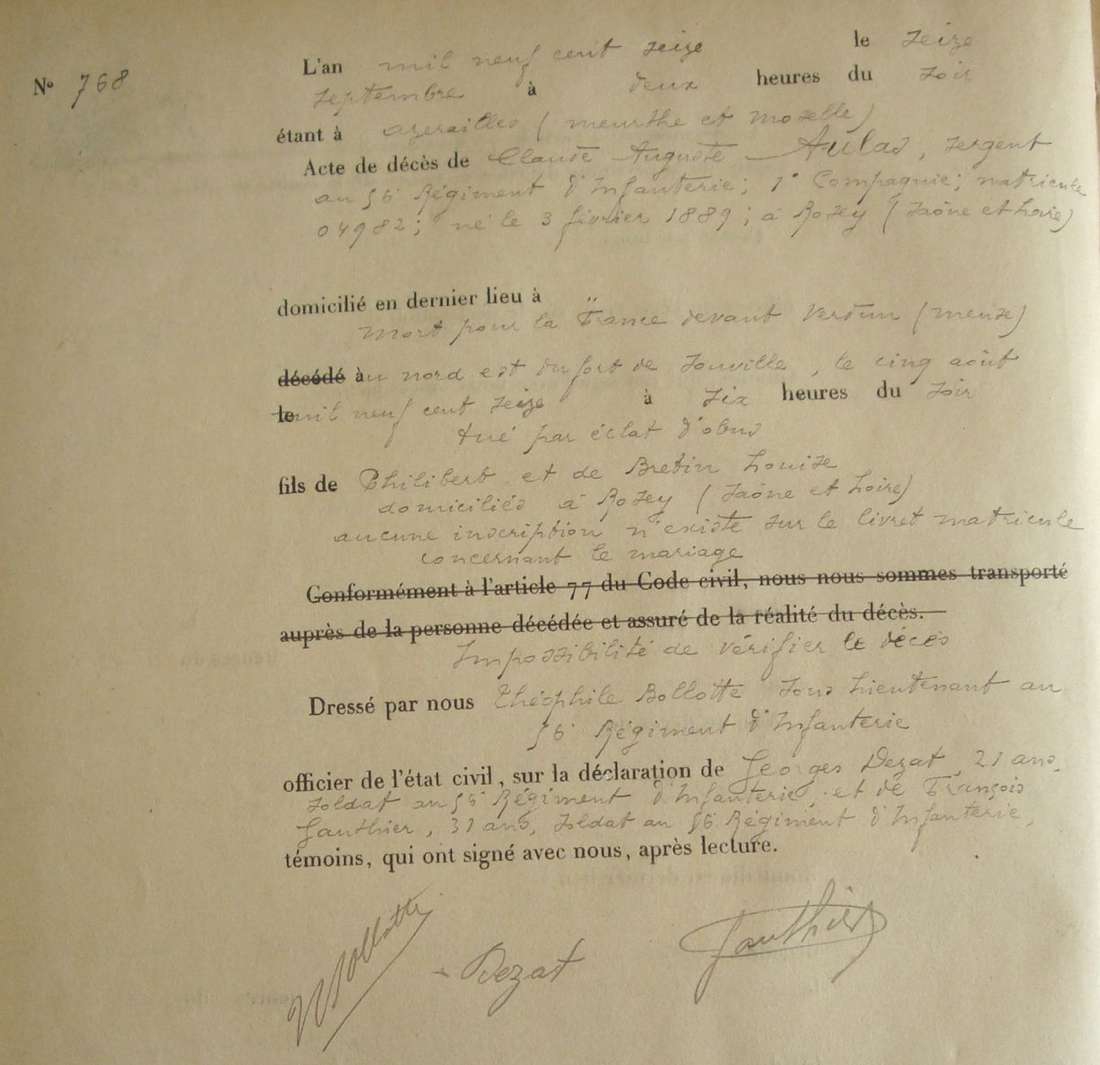 No 768
L'an mil neuf cent seize le seize
septembre à deux heures du soir
étant à azerailles (meurthe et moselle)
Acte de décès de Claude Auguste Aulas, sergent
au 56e Régiment d'Infanterie; 1e Compagnie; matricule
04982; né le 3 février 1889; à Rozey (Saône et Loire)
domicilié en dernier lieu à "
mort pour la France devant Verdun (meuse)
décédé au nord est du fort de Souville, le cinq août
le mil neuf cent seize à six heures du soir
tué par éclat d'obus
fils de Philibert et de Bretin Louise
domiciliés à Rozey (Saône et Loire)
aucune inscription n'existe sur le livret matricule
concernant le mariage
Conformément à l'article 77 du Code civil, nous nous sommes transporté
auprès de la personne décédée et assuré de la réalité du décès.
Impossibilité de vérifier le décès
Dressé par nous Théophile Bollotte sous Lieutenant au
56e Régiment d'Infanterie
officier de l'état civil, sur la déclaration de Georges Dezat, 21 ans,
soldat au 56e Régiment d'Infanterie, et de François
Gauthier, 31 ans, soldat au 56e Régiment d'Infanterie,
témoins, qui ont signé avec nous, après lecture.
Bollotte Dezat Gauthier